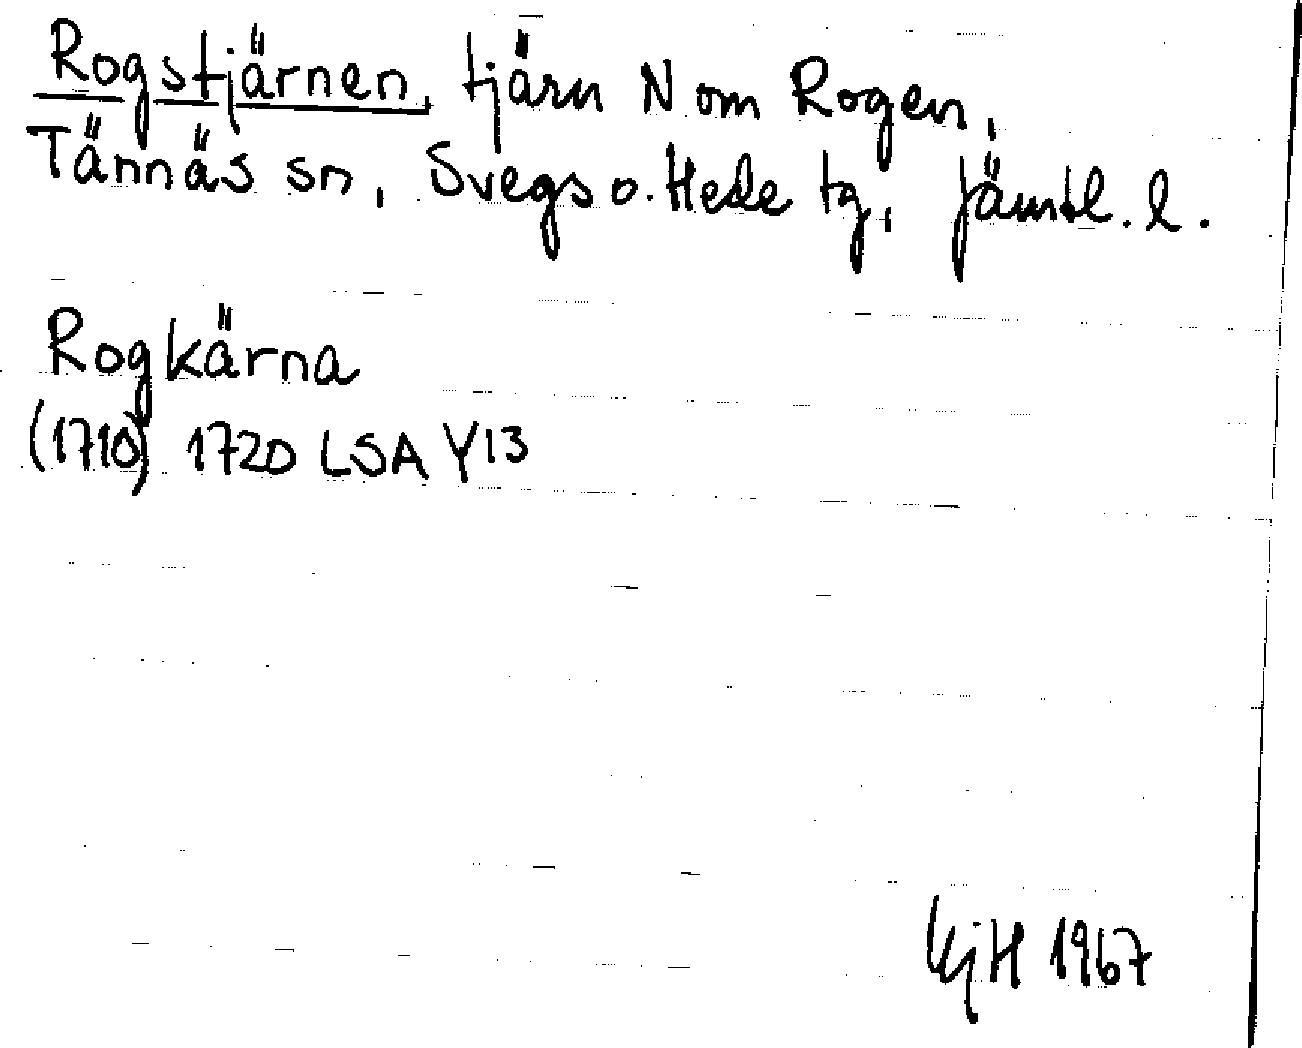 Rogstjärnen, tjärn N om Rogen,
Tännäs sn, Svegs o. Hede tg, Jämtl. l.
Rogkärna
(1710) 1720 LSA Y13
1967